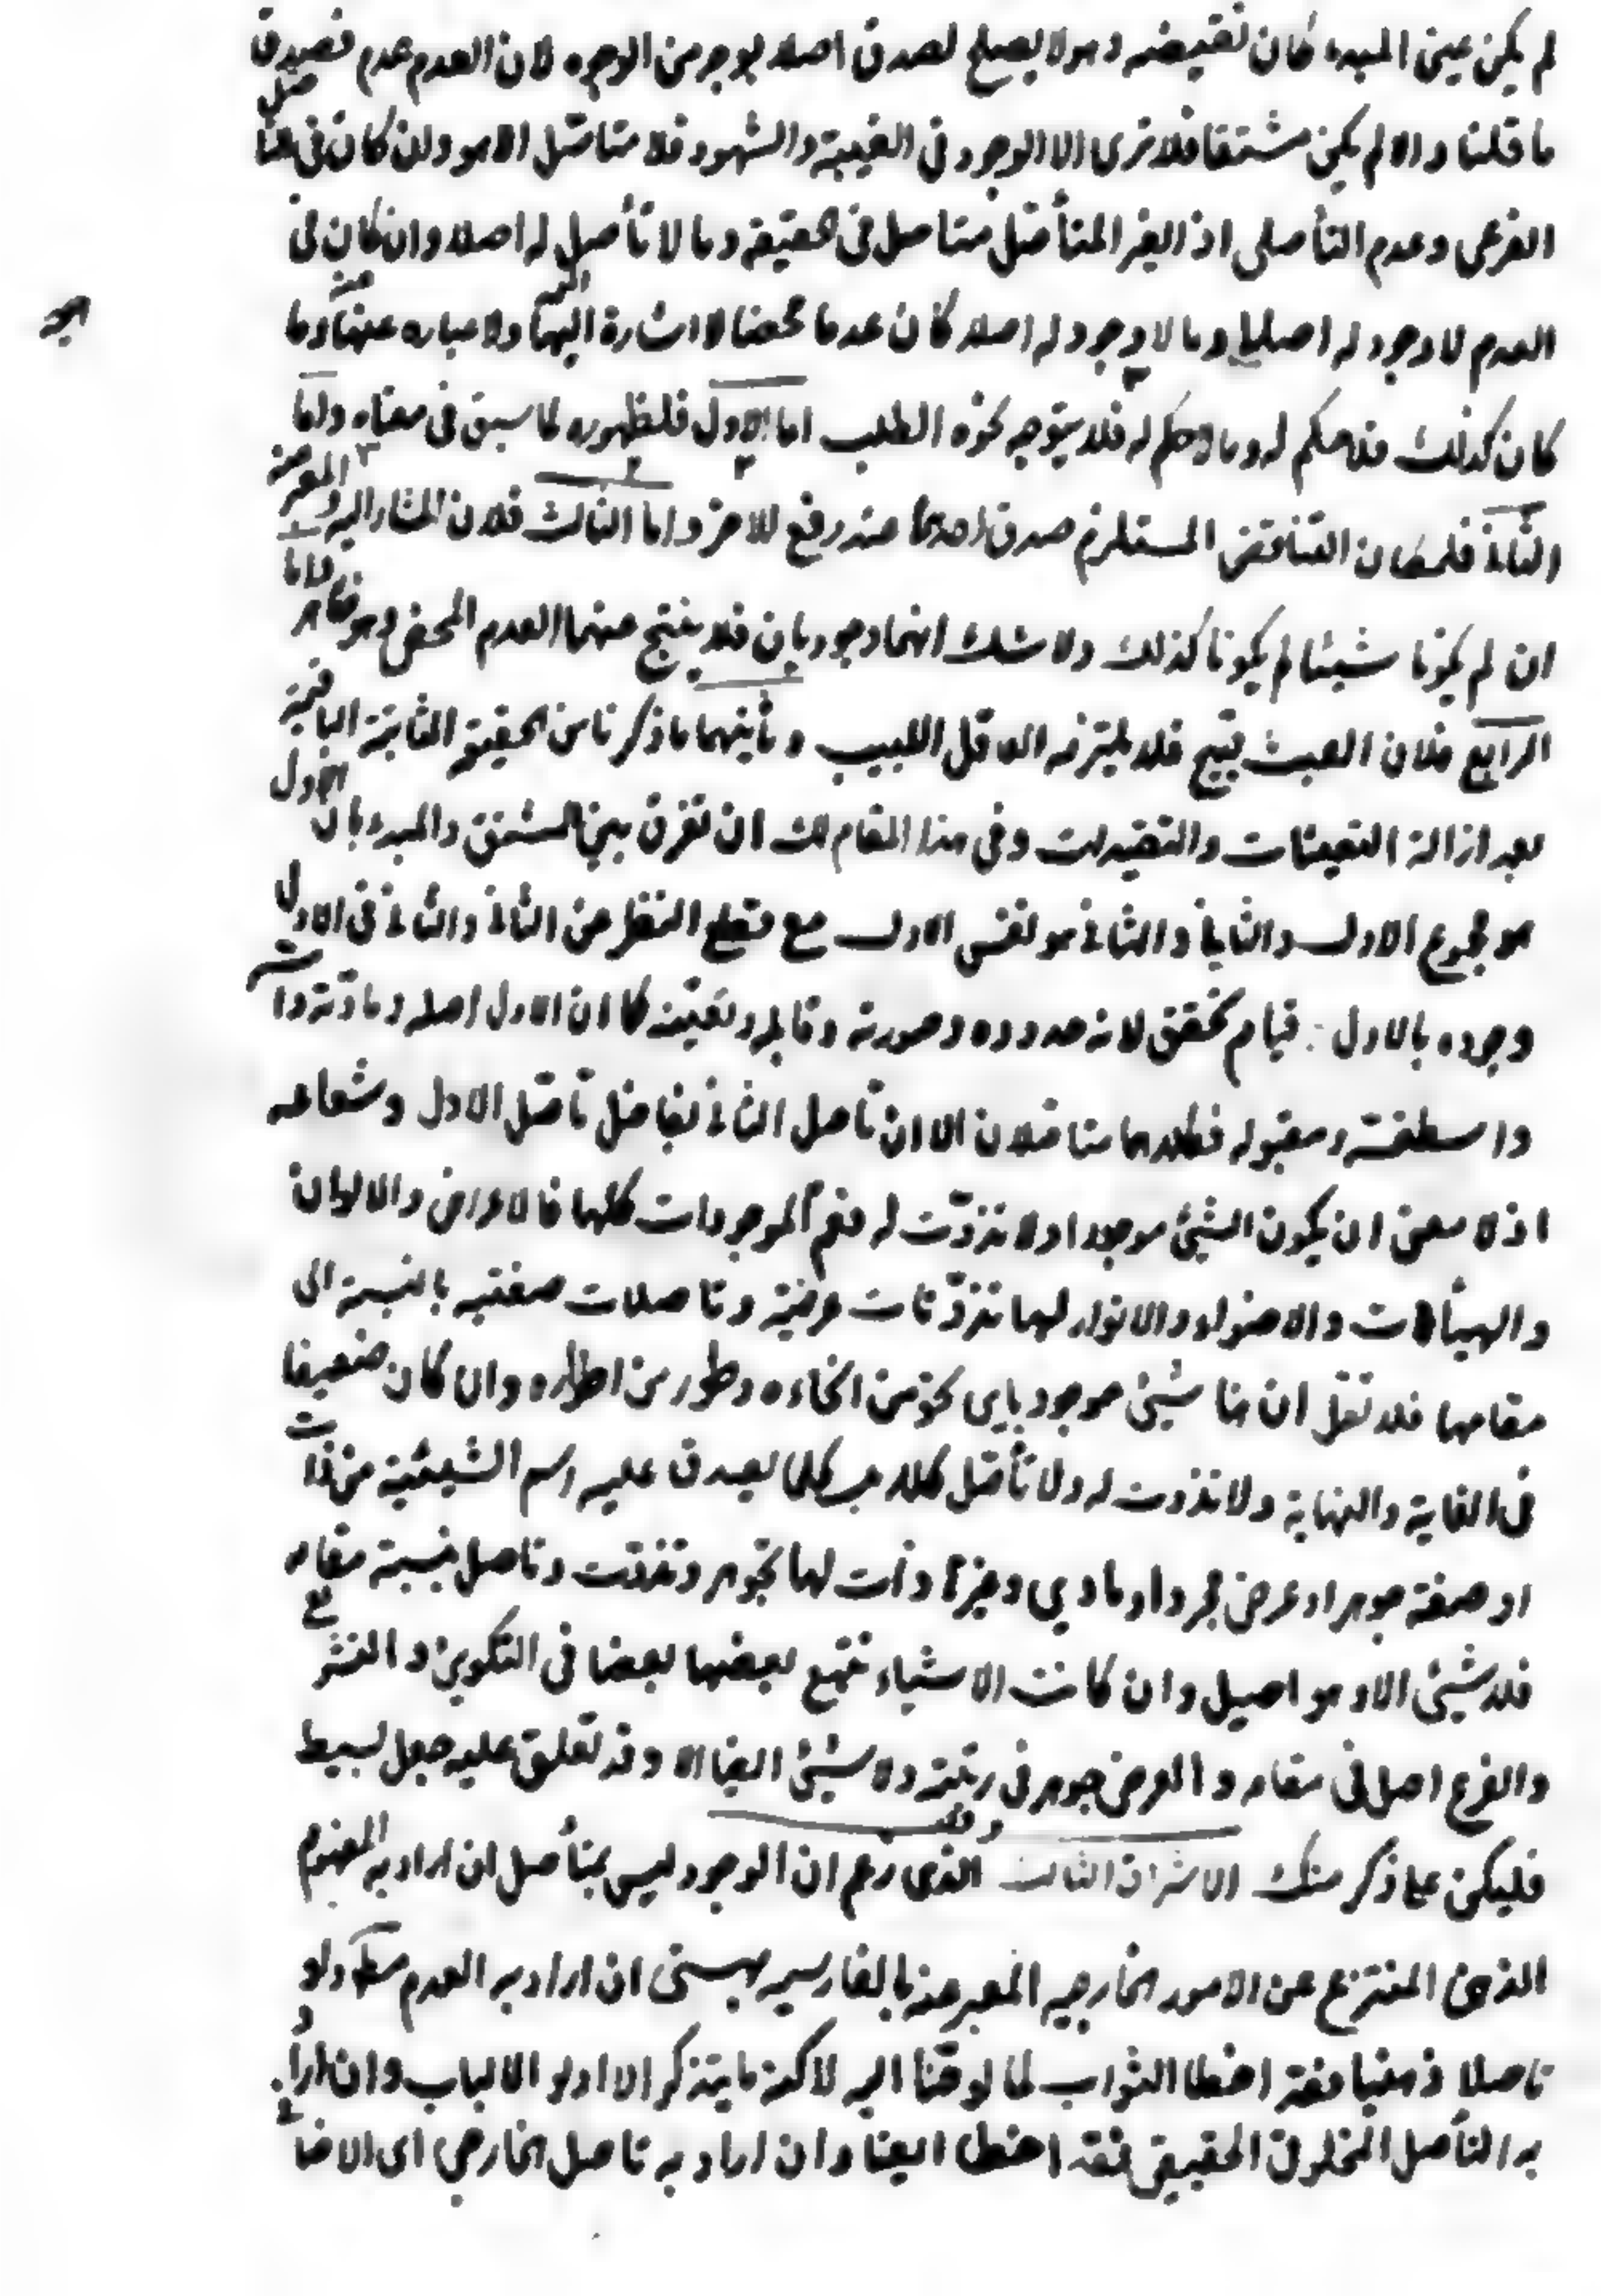 لم يكن عين المبدء كان نقيضه وهو لا يصلح لصدق اصلا بوجه من الوجوه لان العدم عدم فصدق
ما قلنا والا لم يكن مشتقا فلا ترى الا الوجود في الغيبة والشهود فلا متاصل الا هو وان كان في
الفرعي وعدم التأصلي اذ الغير المتأصل متاصل في الحقيقة وما لا تأصل له اصلا وان كان في
العدم لا وجود له اصليا وما لا وجود له اصلا كان عدما محضا لا اشارة اليها ولا عباره عنها وما
كان كذلك فلا حكم له وما لا حكم له فلا يتوجه نحوه الطلب اما الاول فلظهوره لما سبق في معناه واما
الثاني فلمكان التناقض المستلزم صدق احدهما عند رفع الاخر واما الثالث فلان المشار اليه والمعبر عنه
ان لم يكونا شيئا لم يكونا كذلك ولا شك انهما وجوديان فلا ينتج عنهما العدم المحض وهو ظاهر واما
الرابع فلان العبث قبيح فلا يلتزمه العاقل اللبيب وثانيهما ما ذكرنا من الحقيقة الثابتة الباقية
بعد ازالة التعينات والتقييدات وفي هذا المقام لك ان تفرق بين المشتق والمبدء بان الاول
هو مجموع الاول والثاني والثاني هو نفس الاول مع قطع النظر عن الثاني والثاني في الاول
وجوده بالاول قيام تحقق لانه حدوده وصورته وقابله وتعينه كما ان الاول اصله ومادته وذات
واسطقسه ومقبوله فكلاهما متاصلان الا ان تاصل الثاني بفاضل تأصل الاول وشعاعه
اذ لا معنى ان يكون الشيئ موجودا ولا تذوّت له فنعم الموجودات كلها فالاعراض والالوان
والهيئات والاضواء والانوار لها تذوّتات عرضية وتاصلات صفتيه بالنسبة الى
مقامها فلا تقل ان هنا شيئ موجود باي نحو من انحاءه وطور من اطواره وان كان ضعيفا
في الغاية والنهاية ولا تذوت له ولا تأصل كلا بل كلما يصدق عليه اسم الشيئية من ذات
او صفة جوهر او عرض مجرد او مادي وغيرها ذات لها تجوهر وتذوت وتاصل بنسبة مقامه
فلا شيئ الا وهو اصيل وان كانت الاشياء تتبع بعضها بعضا في التكوين و
والفرع اصل في مقامه والعرض جوهر في رتبته ولا شيئ ايضا الا وقد تعلق عليه جعل بسيط
فليكن على ذكر منك الاشراق الثالث الذي زعم ان الوجود ليس بمتأصل ان اراد به المفهوم
الذهني المنتزع عن الامور الخارجيه المعبر عنه بالفارسيه بهستى ان اراد به العدم مطلقا ولو
تاصلا ذهنيا فقد اخطا الثواب لما لوحنا اليه لاكنه ما يتذكر الا اولو الالباب وان اراد
به التأصل المخلوق الحقيقي فقد اخطا ايضا وان اراد به تاصل الخارجي اي